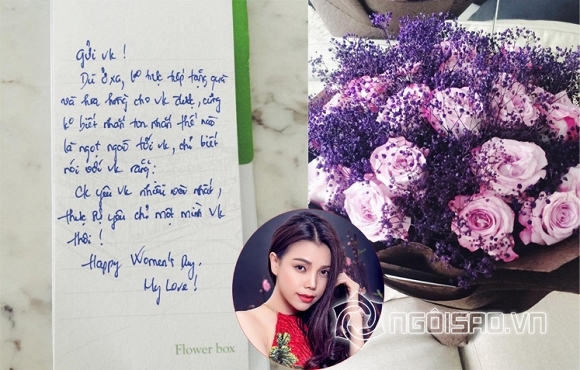 Gửi vk !
Dù ở xa, ko trực tiếp tặng quà
và hoa hồng cho vk được, cũng
ko biết nhắn tin nhắn thế nào
là ngọt ngào tới vk, chỉ biết
nói với vk rằng:
Ck yêu vk nhiều nhất,
thực sự yêu chỉ một mình vk
thôi !
Happy Women's Day.
My Love !
Flower box
NGÔISAO.VN